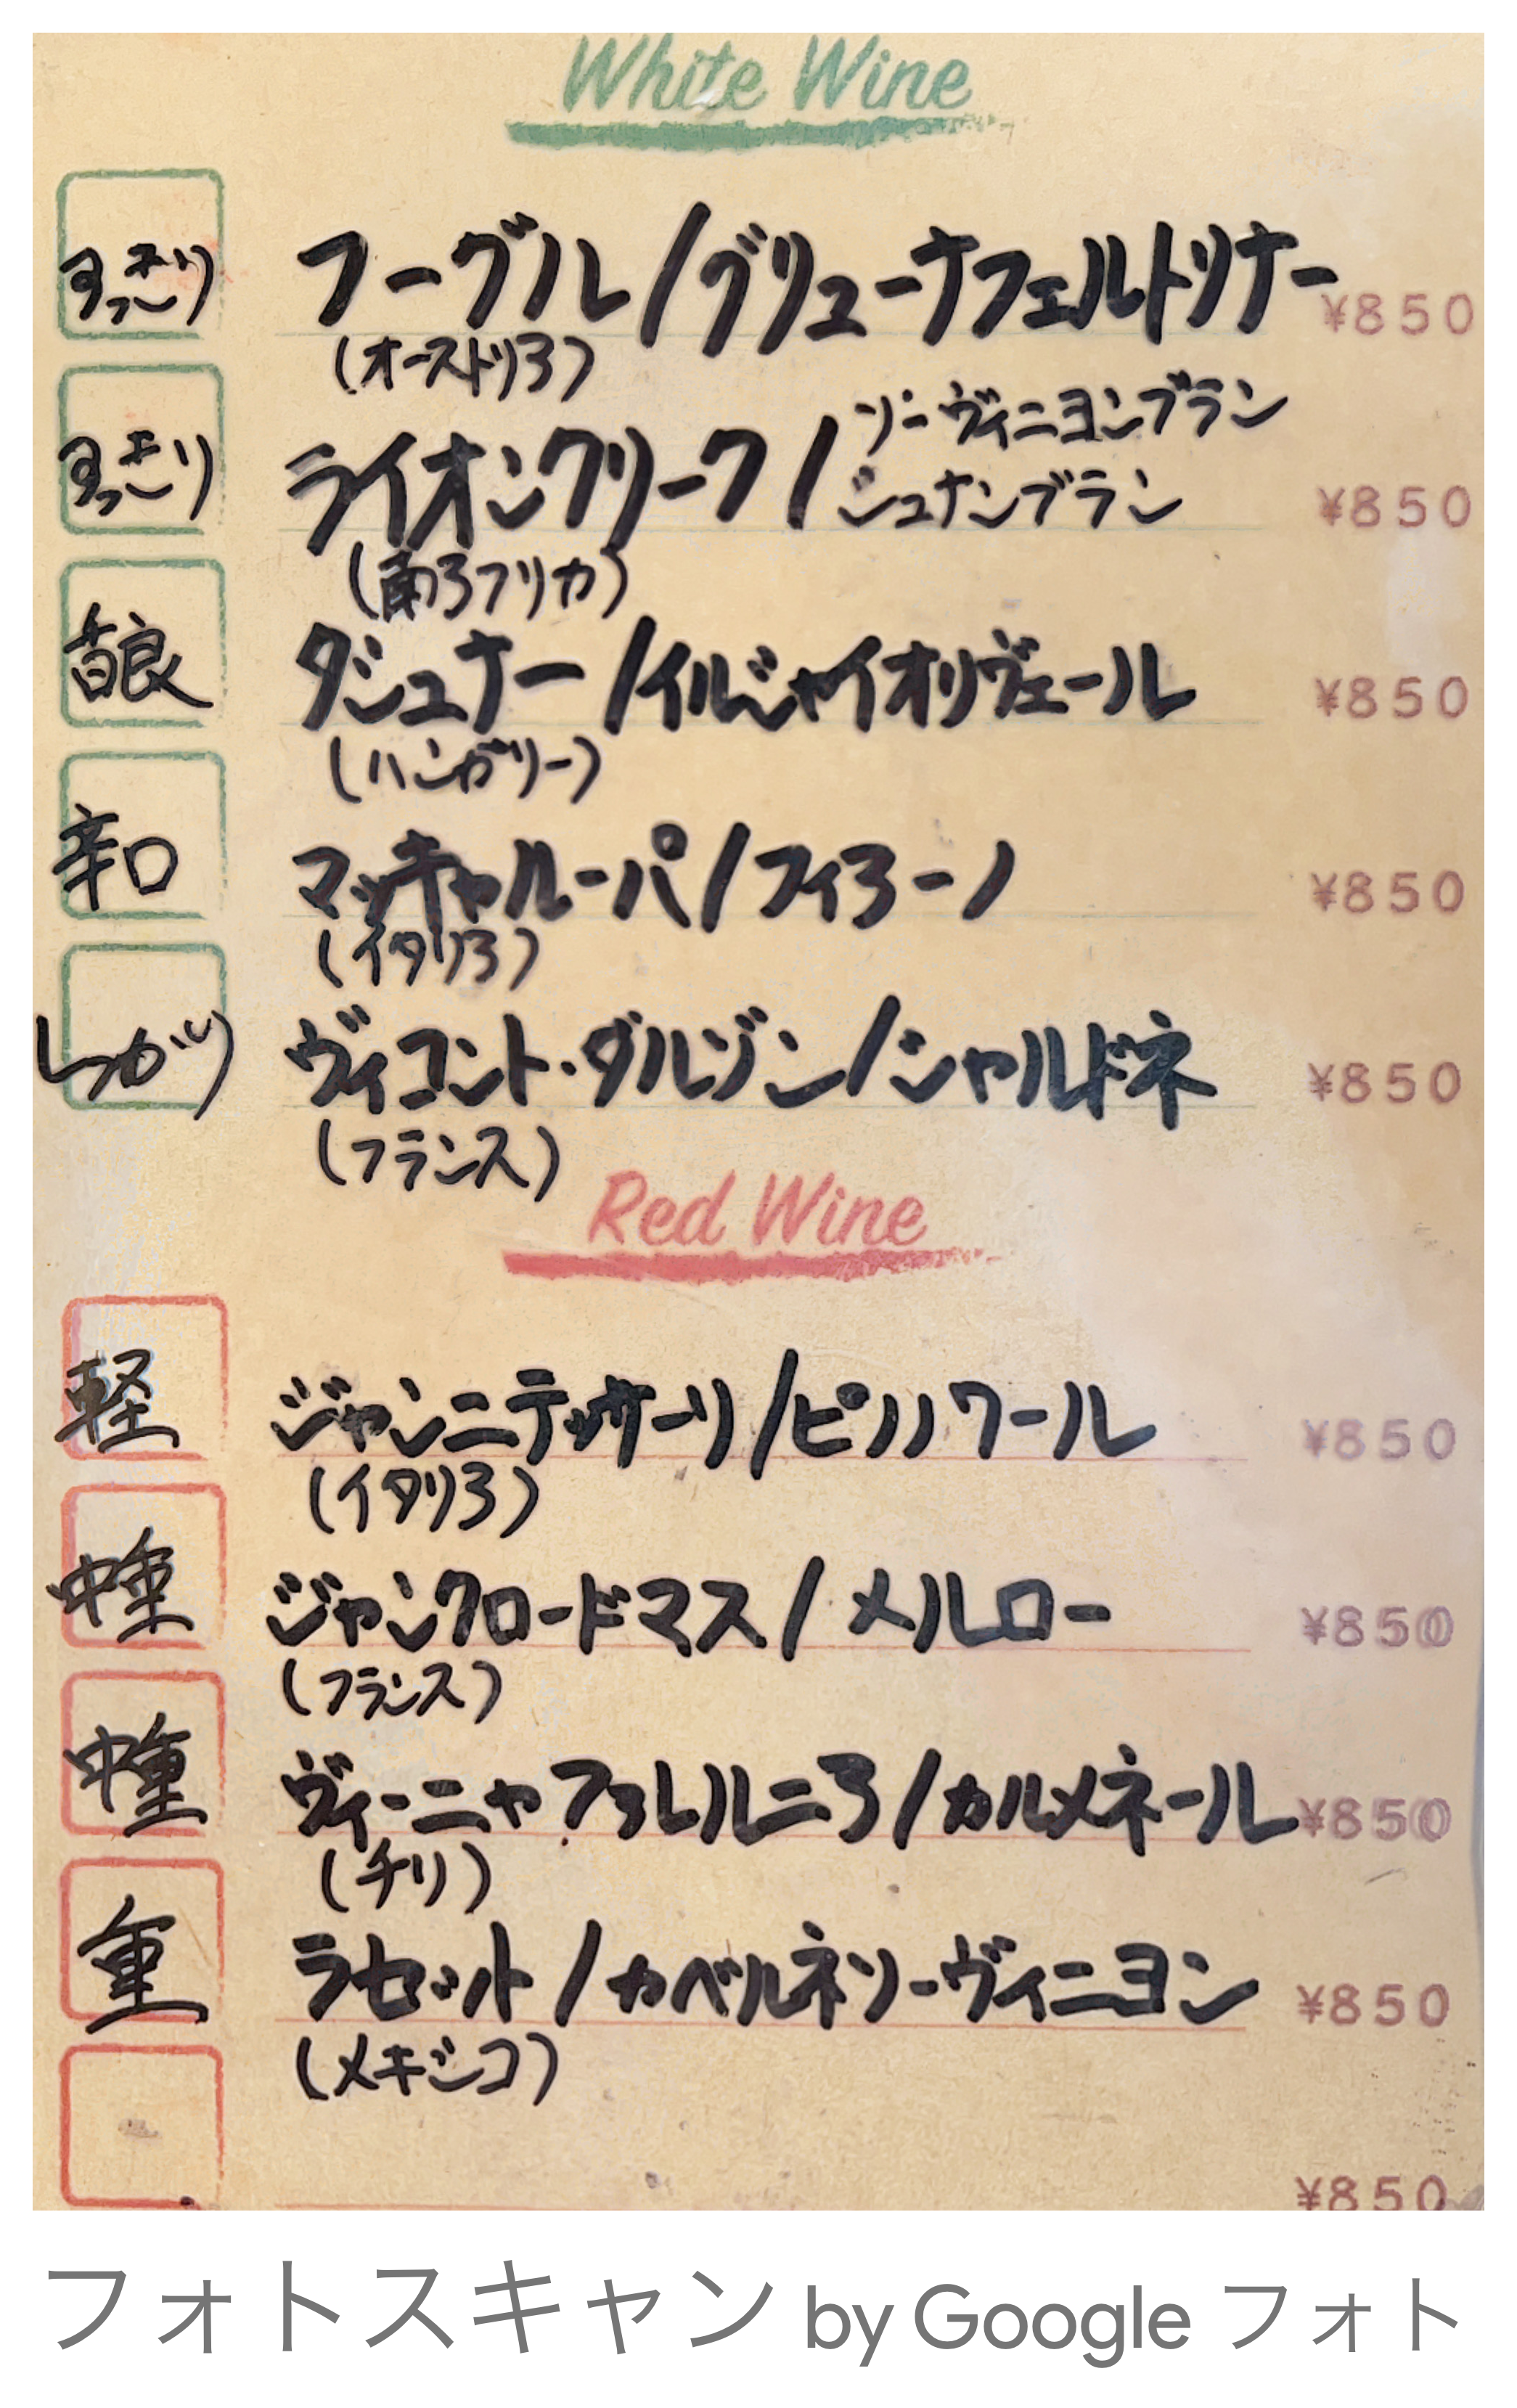 White Wine
すっきり フーグル/グリューナフェルトリナー ¥850
(オーストリア)
すっきり ライオンクリーク/ソーヴィニヨンブラン
シュナンブラン ¥850
(南アフリカ)
ダンシュナー/イルシャイオリヴェール ¥850
(ハンガリー)
辛口 マッキャルーパ/フィアーノ ¥850
(イタリア)
しっかり ヴィコント・ダルゾン/シャルドネ ¥850
(フランス)
Red Wine
軽 ジャンニテッサーリ/ピノノワール ¥850
(イタリア)
中重 ジャンクロードマス/メルロー ¥850
(フランス)
中重 ヴィーニャファレルニア/カルメネール ¥850
(チリ)
重 ラセット/カベルネソーヴィニヨン ¥850
(メキシコ)
¥850
フォトスキャン by Google フォト